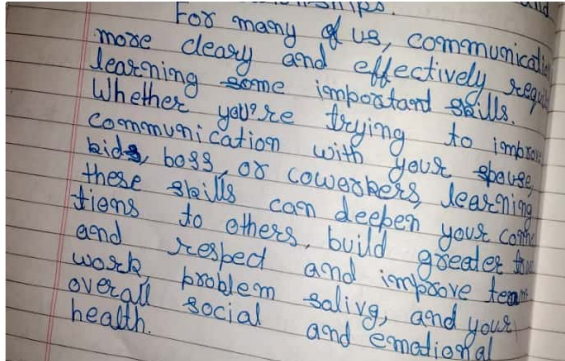 For many of us, communicati
more cleary and effectively requi
learning some important skills.
Whether you're trying to improv
communication with your spouse,
kids, boss, or coworkers, learning
these skills can deepen your conne
tions to others, build greater tru
and respect and improve team
work, problem salivg, and your
overall social and emotional
health.